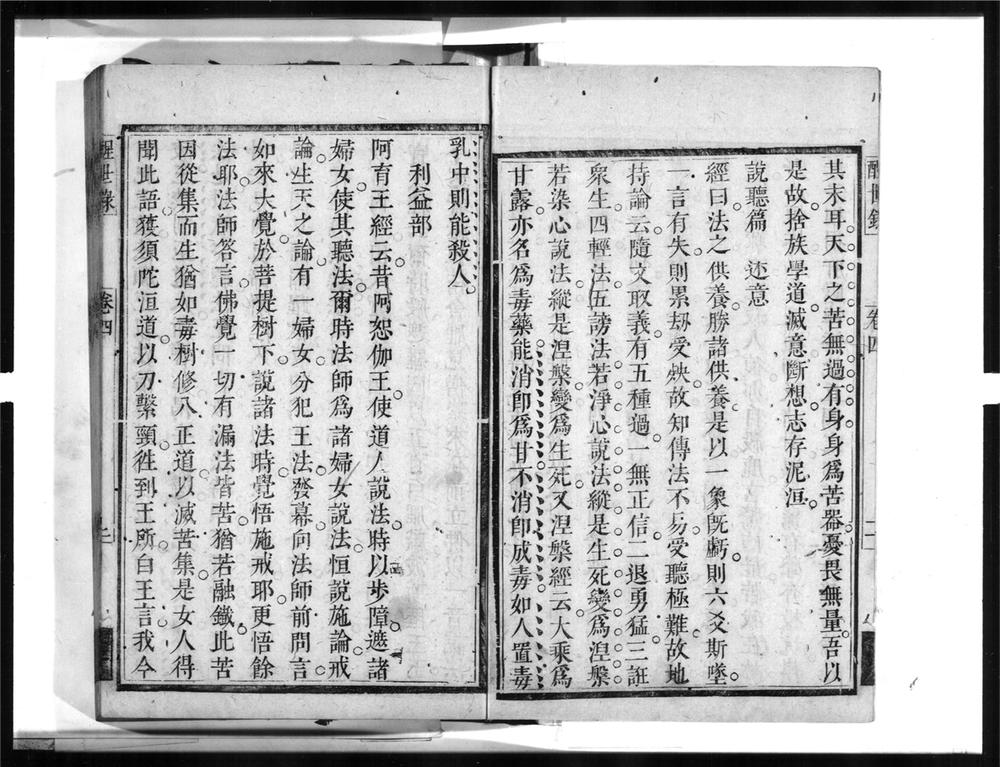 其末耳天下之苦無過有身身爲苦器憂畏無量吾以
是故捨族學道滅意斷想志存泥洹
說聽篇 述意
經曰法之供養勝諸供養是以一象旣虧則六爻斯墜
一言有失則累劫受殃故知傳法不易受聽極難故地
持論云隨文取義有五種過一無正信二退勇猛三誑
衆生四輕法五謗法若淨心說法縱是生死變爲涅槃
若染心說法縱是涅槃變爲生死又涅槃經云大乘爲
甘露亦名爲毒藥能消卽爲甘不消卽成毒如人置毒
醒世錄
卷四
乳中則能殺人
利益部
阿育王經云昔阿恕伽王使道人說法時以步障遮諸
婦女使其聽法爾時法師爲諸婦女說法恒說施論戒
論生天之論有一婦女分犯王法發幕向法師前問言
如來大覺於菩提樹下說諸法時覺悟施戒耶更悟餘
法耶法師答言佛覺一切有漏法皆苦猶若融鐵此苦
因從集而生猶如毒樹修八正道以滅苦集是女人得
聞此語獲須陀洹道以刀繫頸徃到王所白王言我今
醒世錄
卷四